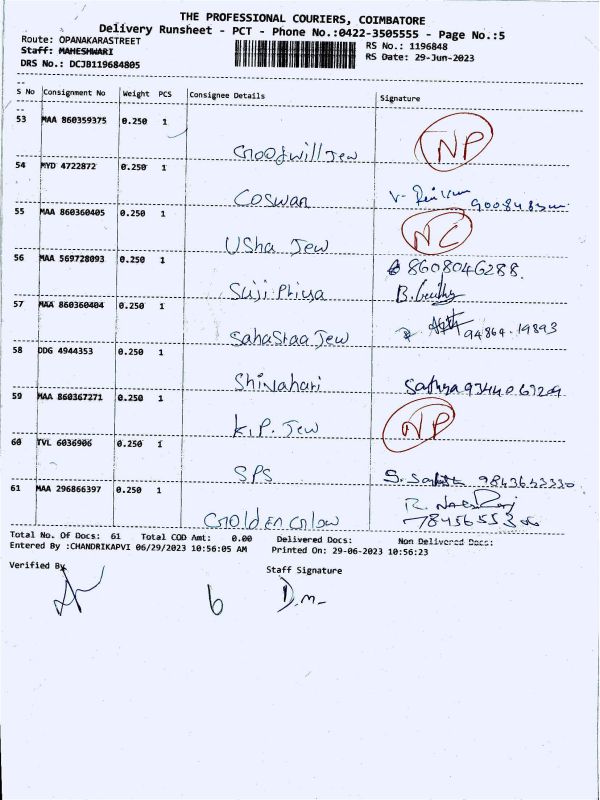 THE PROFESSIONAL COURIERS, COIMBATORE
Delivery Runsheet - PCT - Phone No.:0422-3505555 - Page No.:5
Route: OPANAKARASTREET RS No.: 1196848
Staff: MAHESHWARI RS Date: 29-Jun-2023
DRS No.: DCJB119684805
S No Consignment No Weight PCS Consignee Details Signature
53 MAA 860359375 0.250 1
Goodwill Jew NP
54 MYD 4722872 0.250 1
Coswan V-
55 MAA 860360405 0.250 1
Usha Jew NC
56 MAA 569728093 0.250 1 8608046288.
Suji Priya B.
57 MAA 860360404 0.250 1
Sahasraa Jew 94864.19893
58 DDG 4944353 0.250 1
Shivahari Sathya 9344067209
59 MAA 860367271 0.250 1
K.P. Jew NP
60 TVL 6036906 0.250 1
SPS S. 9843642330
61 MAA 296866397 0.250 1 R.
Golden Glow
Total No. Of Docs: 61 Total COD Amt: 0.00 Delivered Docs: Non Delivered Docs:
Entered By :CHANDRIKAPVI 06/29/2023 10:56:05 AM Printed On: 29-06-2023 10:56:23
Verified By Staff Signature
6 D.m